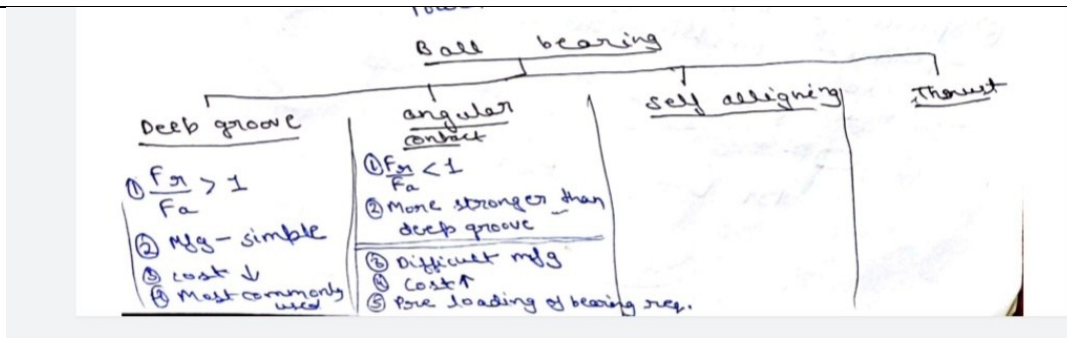 Ball bearing
Deep groove
① Fr/Fa > 1
② Mfg - simple
③ cost ↓
④ Most commonly used
angular contact
① Fr/Fa < 1
② More stronger than
deep groove
③ Difficult mfg
④ Cost ↑
⑤ Pre loading of bearing req.
self alligning
Thrust